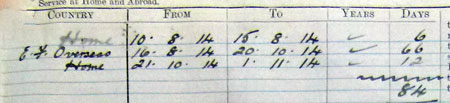 Service at Home and Abroad.
COUNTRY FROM TO YEARS DAYS
Home 10. 8. 14 15. 8. 14 6
E.F. Overseas 16. 8. 14 20. 10. 14 66
Home 21. 10. 14 1. 11. 14 12
84